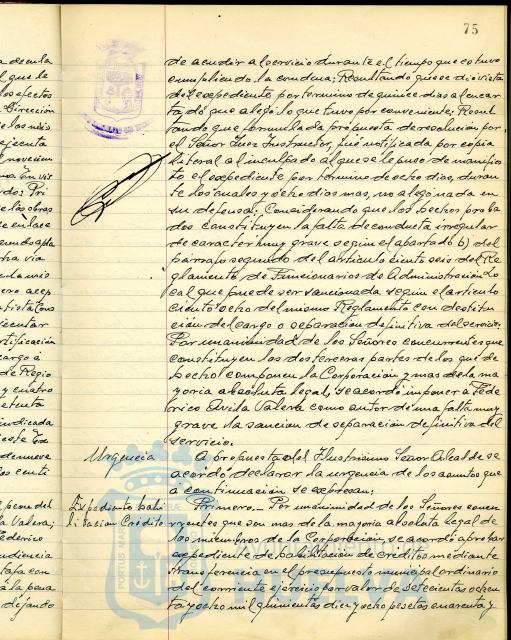 75
de acudir al servicio durante el tiempo que estuvo
cumpliendo la condena; Resultando que se dió vista
del expediente por termino de quince dias al encar
tado que alegó lo que tuvo por conveniente; Resul
tando que formulada propuesta de resolucion por
el Señor Juez Instructor, fué notificada por copia
literal al inculpado al que se le puso de manifies
to el expediente por termino de ocho dias, duran
te los cuales y ocho dias mas, no alegó nada en
su defensa; Considerando que los hechos proba
dos constituyen la falta de conducta irregular
de caracter muy grave según el apartado b) del
párrafo segundo del articulo ciento seis del Re
glamento de Funcionarios de Administración Lo
cal que puede ser sancionada según el articulo
ciento ocho del mismo Reglamento con destitu
ción del cargo o separación definitiva del servicio.
Por unanimidad de los Señores concurrentes que
constituyen las dos terceras partes de los que de
hecho componen la Corporación y mas de la ma
yoria absoluta legal, se acordó imponer a Fede
rico Avila Valera como autor de una falta muy
grave la sancion de separación definitiva del
servicio.
Urgencia A propuesta del Ilustrisimo Señor Alcalde se
acordó declarar la urgencia de los asuntos que
a continuación se expresan:
Expediente habi Primero.- Por unanimidad de los Señores concu
litacion Crédito rrentes que son mas de la mayoria absoluta legal de
los miembros de la Corporación, se acordó aprobar
expediente de habilitación de créditos mediante
transferencia en el presupuesto municipal ordinario
del corriente ejercicio por valor de setecientas ochen
ta y ocho mil quinientas diez y ocho pesetas cuarenta y